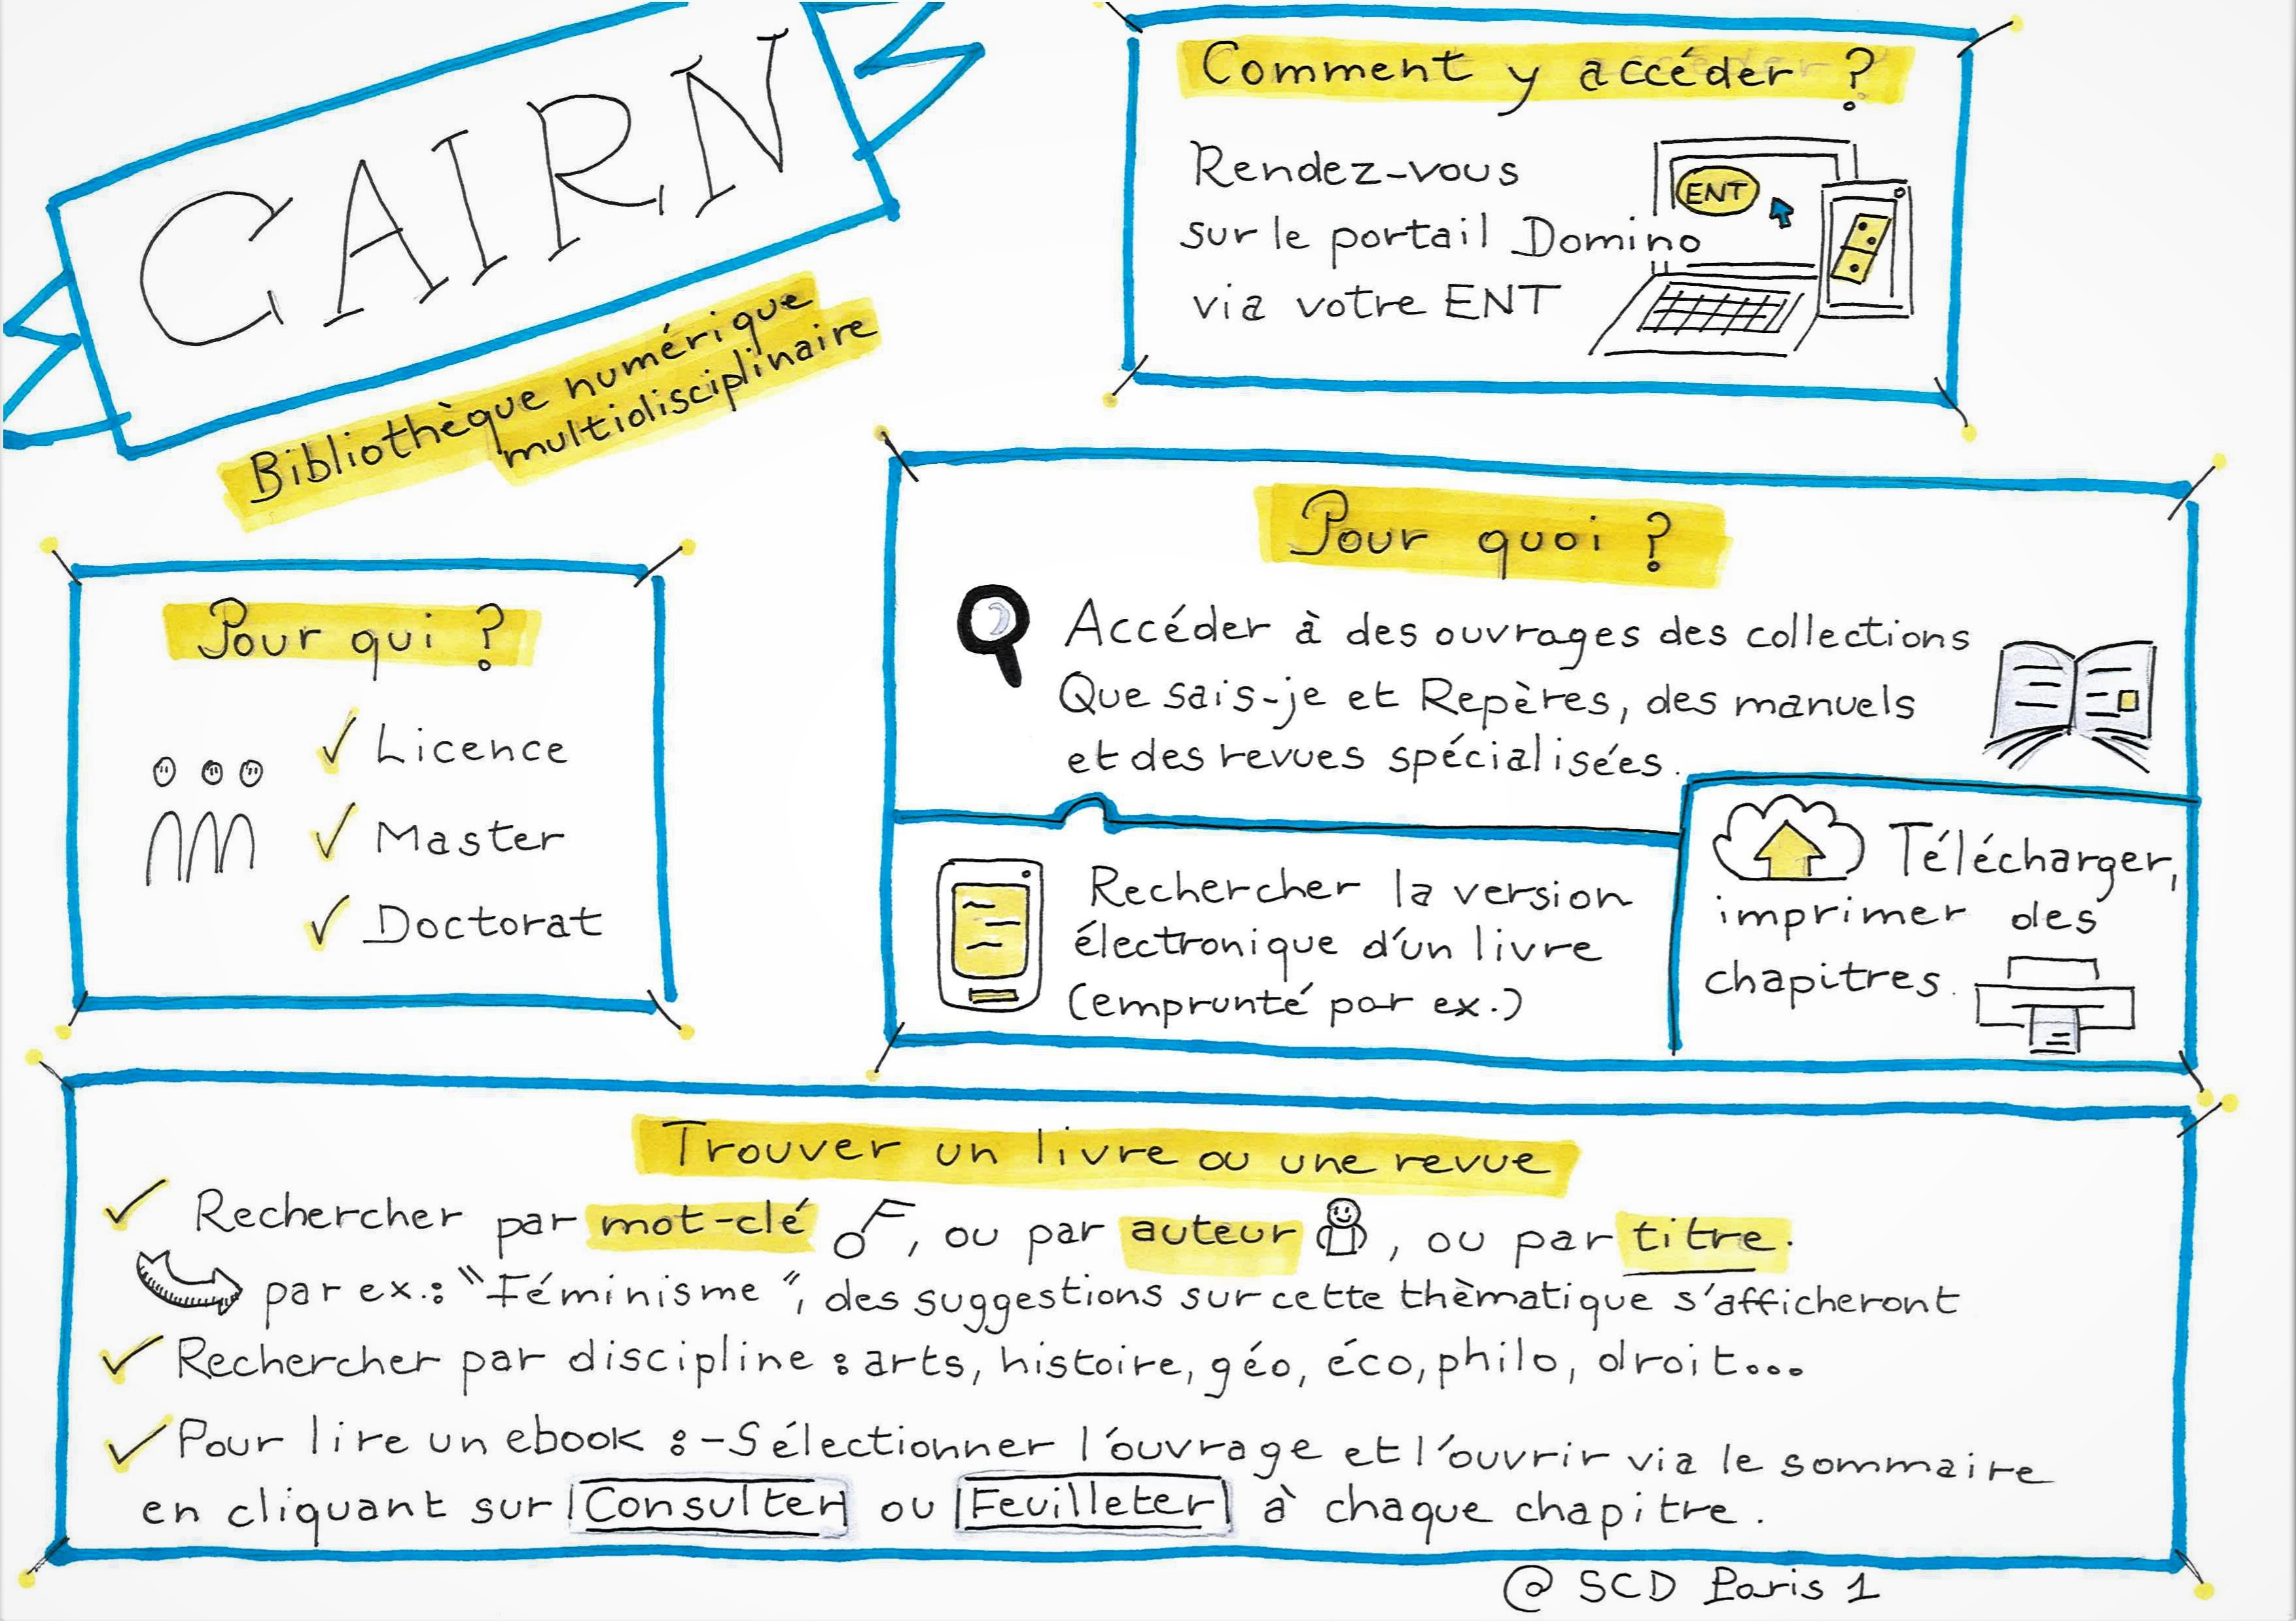 CAIRN
Bibliothèque numérique
multidisciplinaire
Comment y accéder ?
Rendez-vous
sur le portail Domino
via votre ENT
ENT
Pour qui ?
✓ Licence
✓ Master
✓ Doctorat
Pour quoi ?
Accéder à des ouvrages des collections
Que sais-je et Repères, des manuels
et des revues spécialisées.
Rechercher la version
électronique d'un livre
(emprunté par ex.)
Télécharger,
imprimer des
chapitres.
Trouver un livre ou une revue
✓ Rechercher par mot-clé, ou par auteur, ou par titre.
par ex.: "Féminisme", des suggestions sur cette thèmatique s'afficheront
✓ Rechercher par discipline : arts, histoire, géo, éco, philo, droit...
✓ Pour lire un ebook : - Sélectionner l'ouvrage et l'ouvrir via le sommaire
en cliquant sur Consulter ou Feuilleter à chaque chapitre.
@ SCD Paris 1